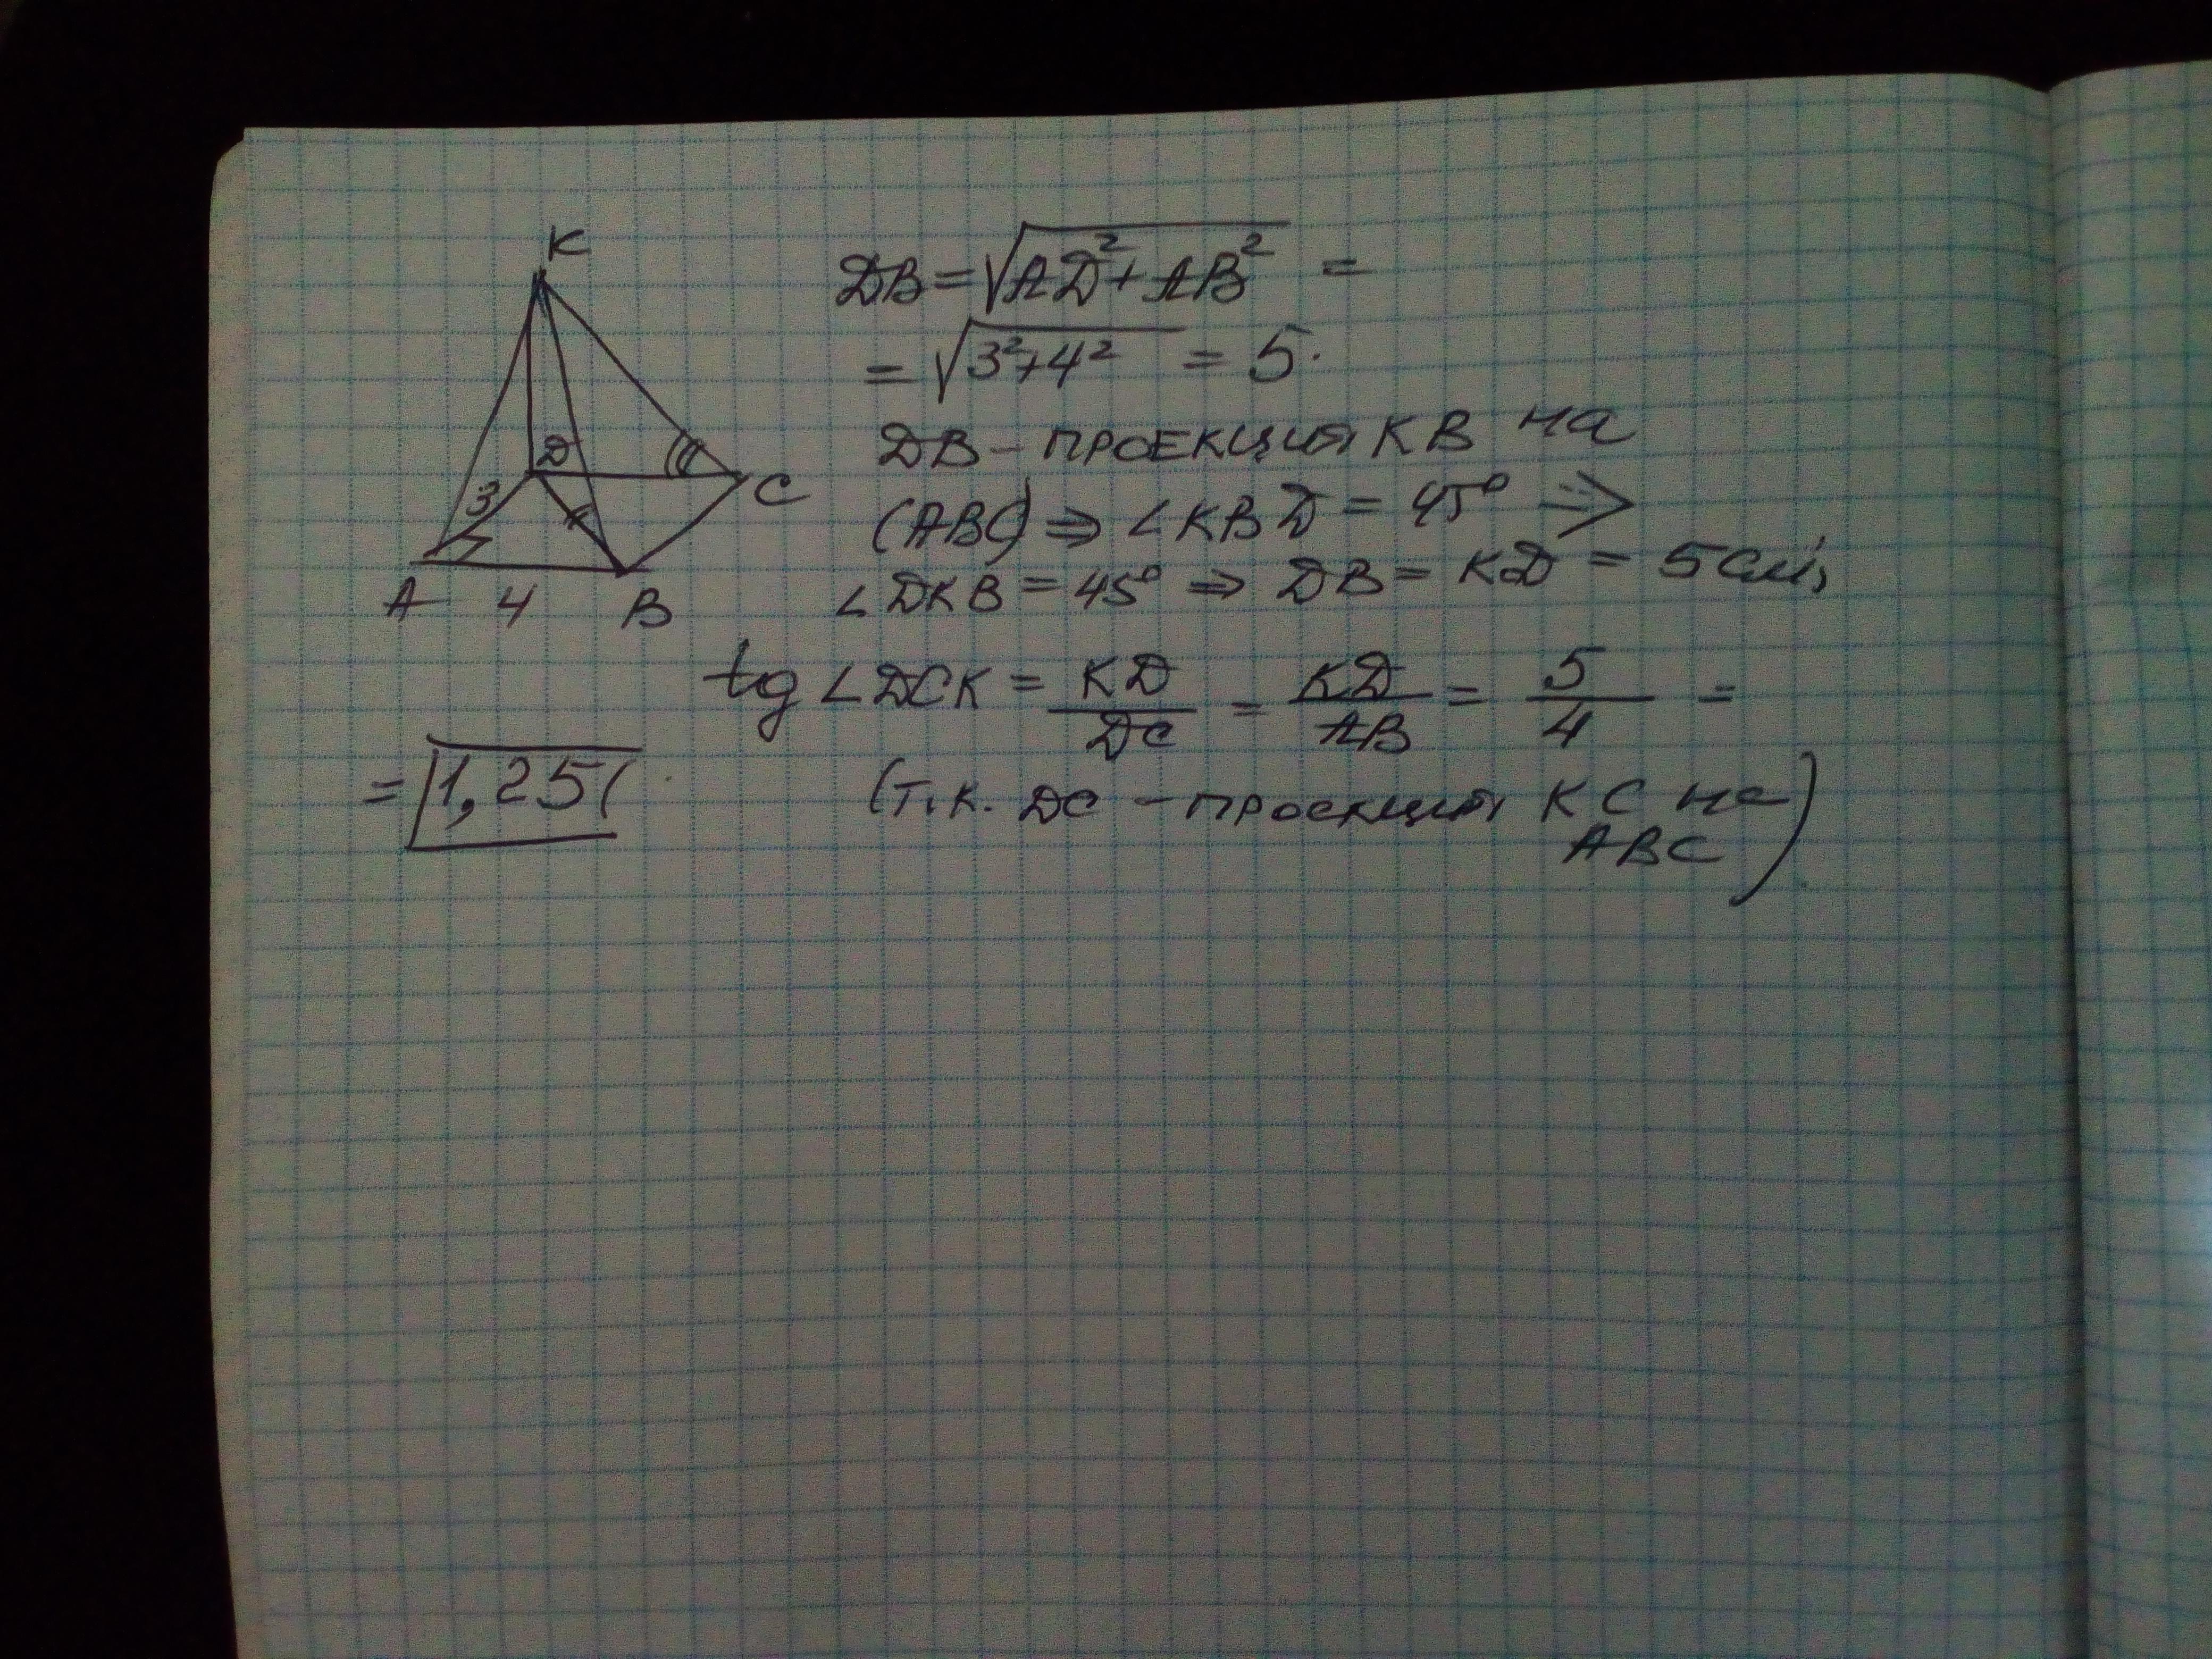 K
D
3
C
A 4 B
DB = √AD² + AB² =
= √3²+4² = 5.
DB – проекция KB на
(ABC) ⇒ ∠KBD = 45° ⇒
∠DKB = 45° ⇒ DB = KD = 5см;
tg ∠DCK = KD/DC = KD/AB = 5/4 =
= 1,25
(т.к. DC – проекция KC на
ABC)